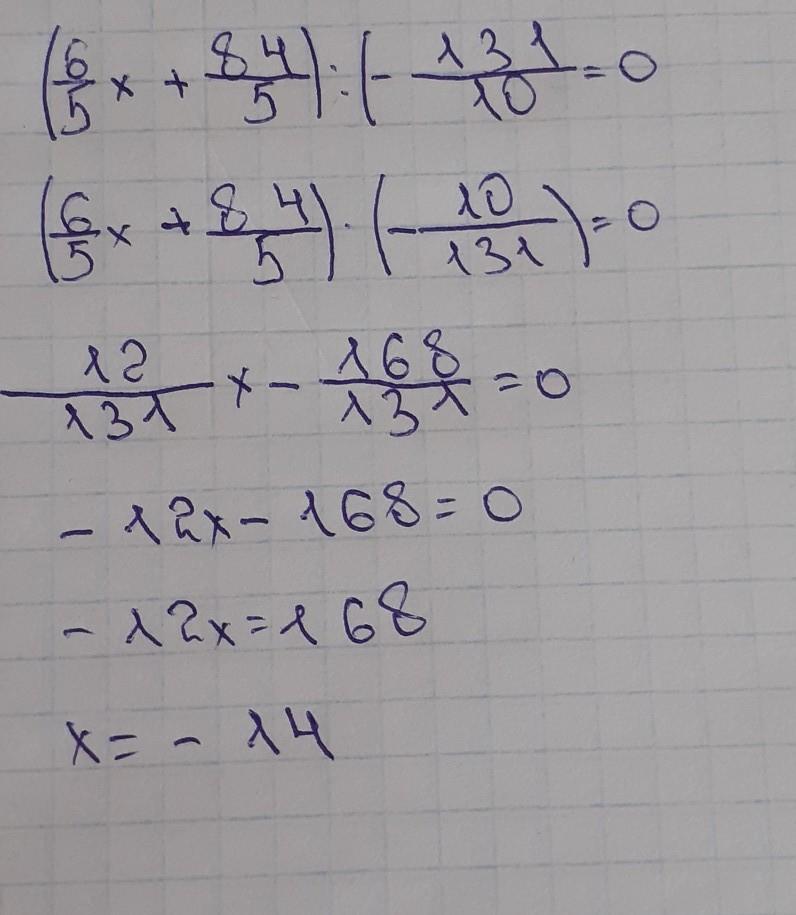 (6/5 x + 84/5) : (- 131/10 = 0
(6/5 x + 84/5) · (- 10/131) = 0
- 12/131 x - 168/131 = 0
- 12x - 168 = 0
- 12x = 168
x = - 14